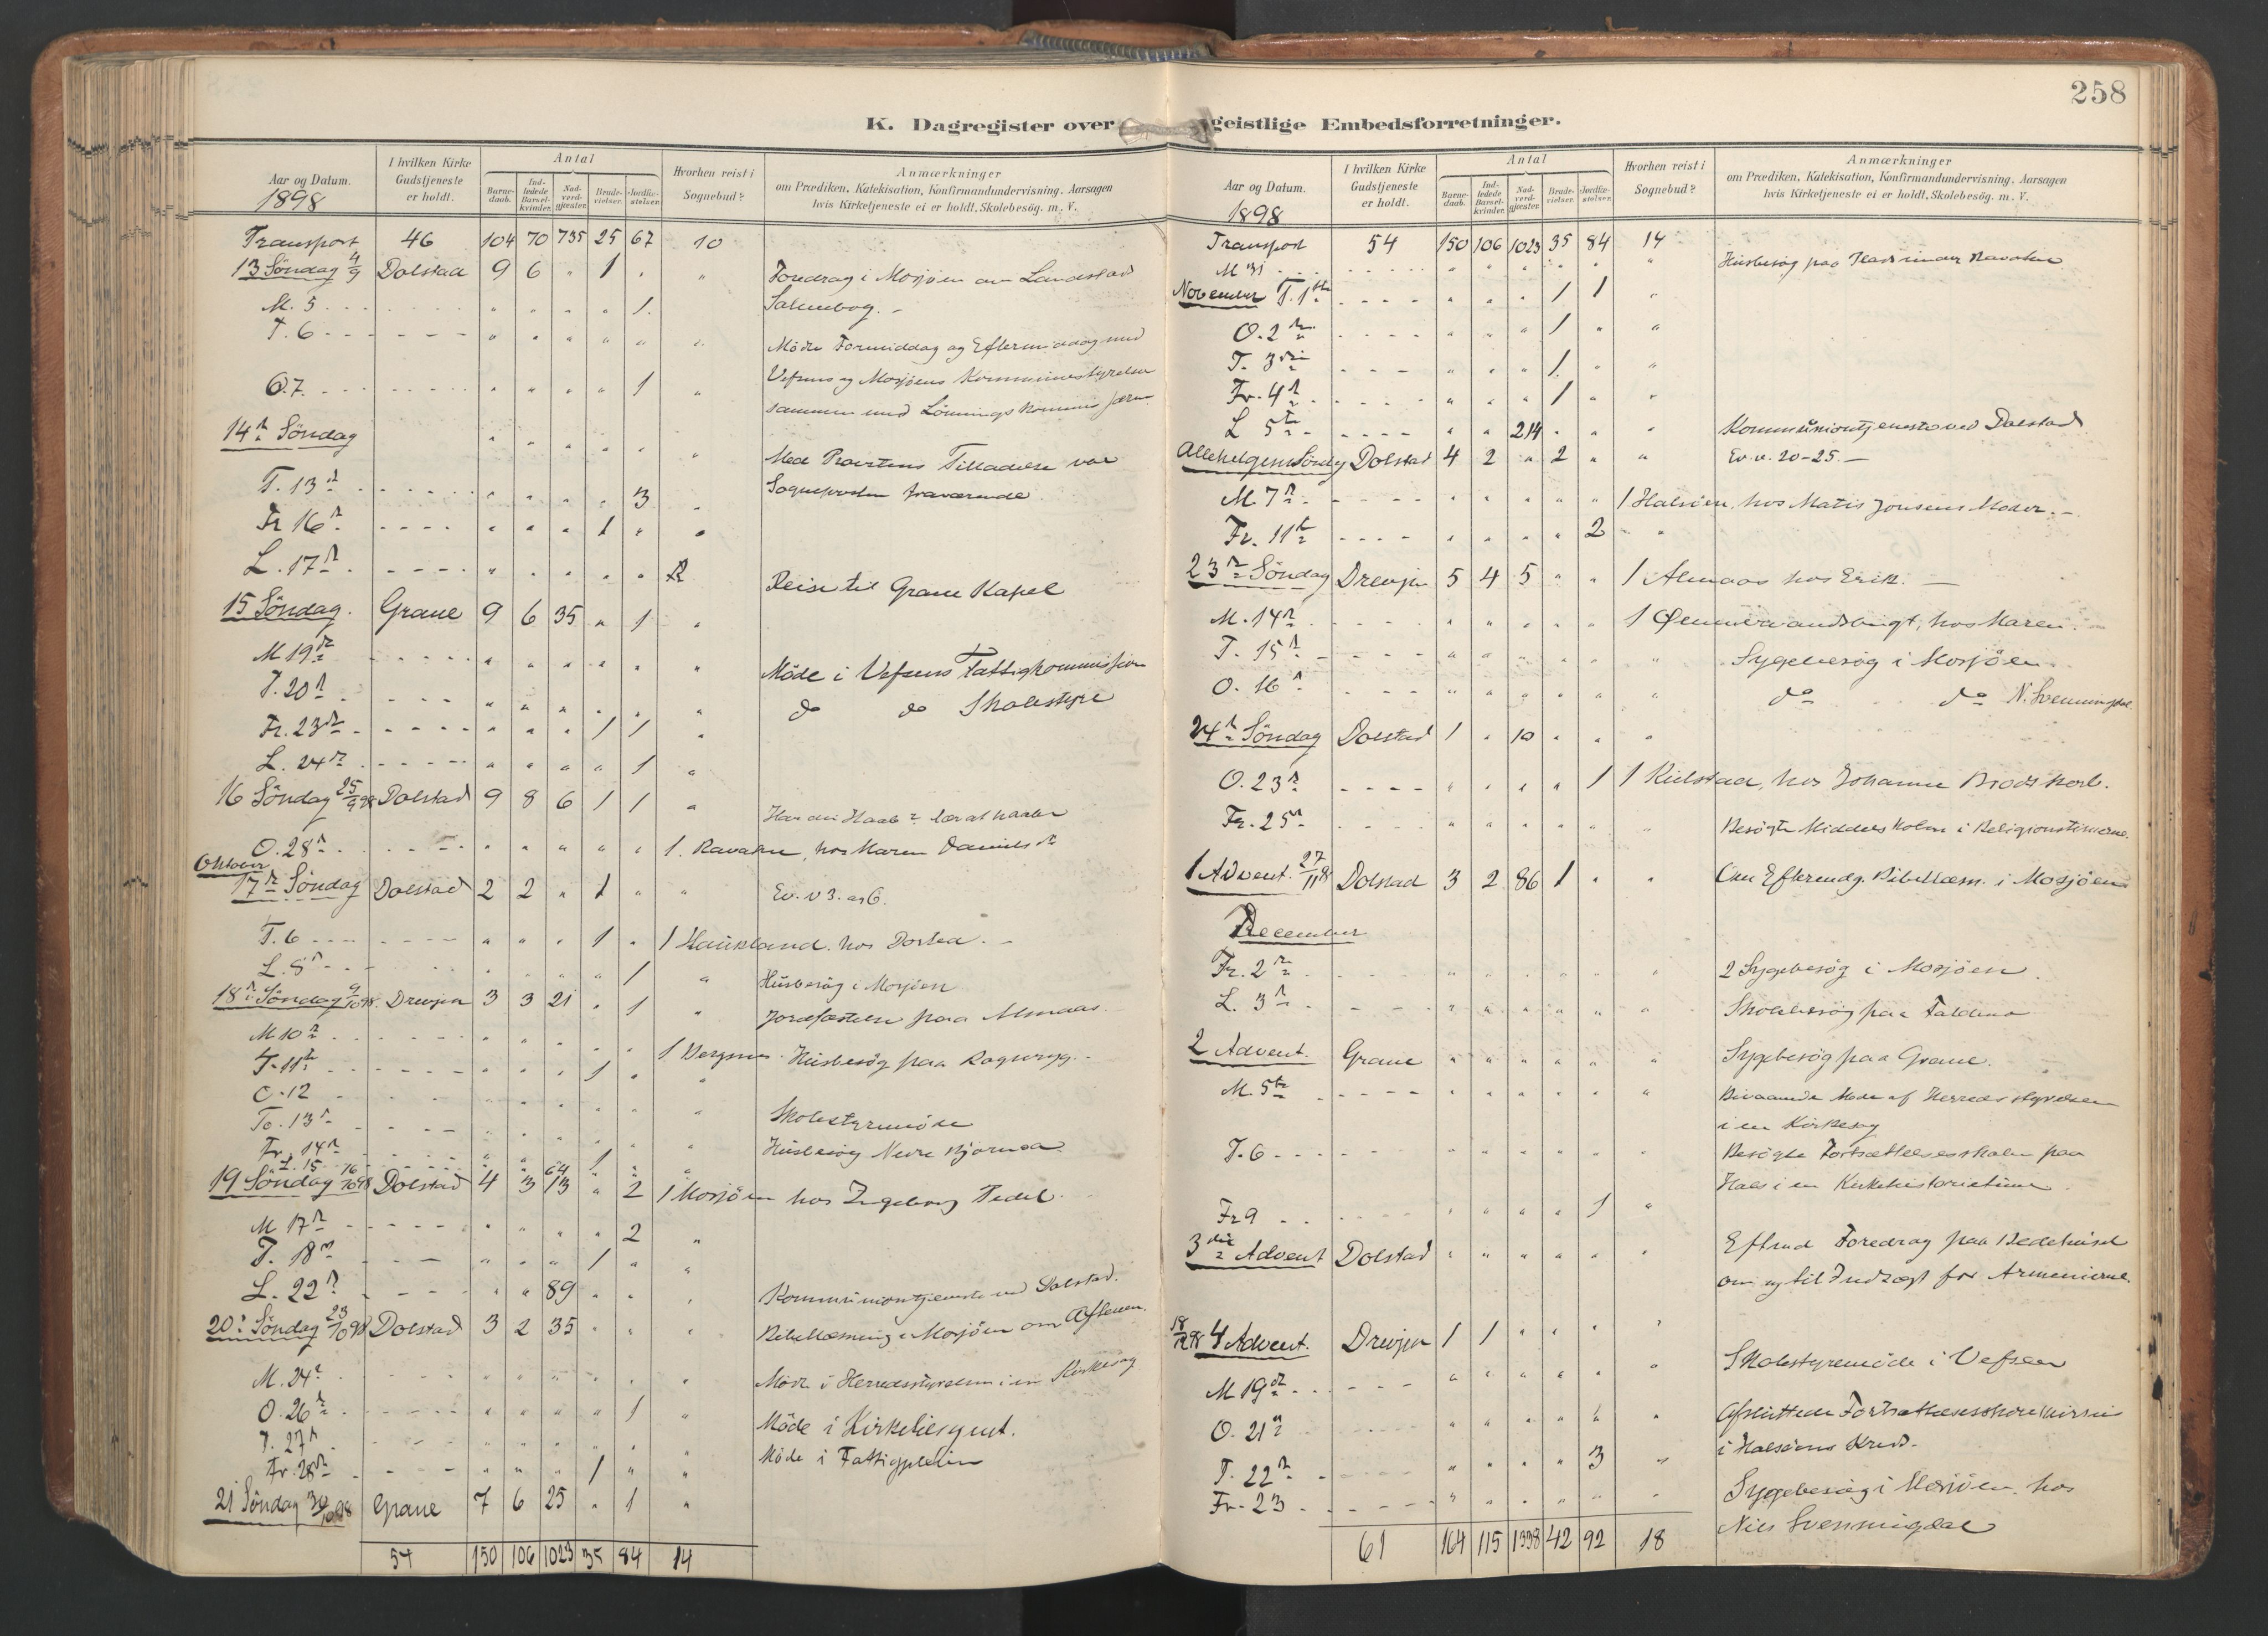 258
K. Dagregister over geistlige Embedsforretninger.
Aar og Datum. 1898
I hvilken Kirke Gudstjeneste er holdt.
Antal
Barnedaab.
Indledede Barselkvinder.
Nadverdgjæster.
Brudevielser.
Jordfæstelser.
Hvorhen reist i Sognebud?
Anmærkninger
om Prædiken, Katekisation, Konfirmandundervisning. Aarsagen
hvis Kirketjeneste ei er holdt, Skolebesøg. m. V.
Transport 46 104 70 735 25 67 10
13 Söndag 4/9 Dolstad 9 6 " 1 Foredrag i Mosjöen om Landstads
M. 5 1 Salmebog. -
T. 6 Möde Formiddag og Eftermiddag med
O. 7. 1 Vefsens og Mosjöens Kommunestyrelse
sammen med Lönnings
14de Söndag Med Provstens Tilladelse var
T. 13de 3 Sognepresten fraværende.
Fr 16de 1
L. 17de Reise til Grane Kapel
15 Söndag. Grane 9 6 35 " 1
M 19de Möde i Vefsens Fattigkommission
T. 20de do do Skolestyre
Fr. 23de 1 1
L. 24de 1
16 Söndag 25/9 98 Dolstad 9 8 6 1 1
O. 28de 1 Ravatn, hos Maren Daniels
Oktober
17de Söndag Dolstad 2 2 " 1 Ev. v 3. og 6.
T. 6 1 1 Haukland. hos Dortea. -
L. 8de 1 Husbesög i Mosjöen
18de Söndag 9/10 98. Drevjen 3 3 21 " 1 Jordfæstelse paa Almaas.
M 10de 1
T. 11te 1 Husbesög paa
O. 12
To. 13de Skolestyremöde
Fr. 14de 1 Husbesög Nedre Bjornaa
L. 15 64
19 Söndag 16/10 98 Dolstad 4 3 13 " 2 1 Mosjöen hos Ingeborg
M 17de 2
T. 18de 1
L. 22de 89 Kommuniontjeneste ved Dolstad.
20de Söndag 23/10 98 Dolstad 3 2 35 Bibellæsning i Mosjöen om Aftenen.
M. 24de Möde i Herredsstyrelsen i en Kirkesag
O. 26de 1 Möde i Kirketilsynet.
T. 27de Möde i Fattigplejen
Fr. 28de 1
21 Söndag 30/10 98 Grane 7 6 25 " 1
54 150 106 1023 35 84 14
Aar og Datum. 1898
I hvilken Kirke Gudstjeneste er holdt.
Antal
Barnedaab.
Indledede Barselkvinder.
Nadverdgjæster.
Brudevielser.
Jordfæstelser.
Hvorhen reist i Sognebud?
Anmærkninger
om Prædiken, Katekisation, Konfirmandundervisning, Aarsagen
hvis Kirketjeneste ei er holdt, Skolebesøg. m. V.
Transport 54 150 106 1023 35 84 14
M 31 Husbesög paa
November T. 1ste 1 1
O. 2den 1
T. 3die 1
Fr. 4de 1
L 5te 214 Kommuniontjeneste ved Dolstad
Allehelgens Söndg Dolstad 4 2 " 2 Ev. v. 20-25. -
M. 7de 1 Halsöen, hos Matis Jonsens Moder. -
Fr. 11te 2
23de Söndag Drevjen 5 4 5 1 Almaas hos Erik. -
M. 14de 1 hos Maren.
T. 15de Sygebesög i Mosjöen
O. 16de do do N. Svenningdal.
24de Söndag Dolstad 1 " 10
O. 23de 1 1 Kulstad, hos Johanne
Fr. 25de Besögte Middelskolen i Religionstimerne.
1 Advent. 27/11 98 Dolstad 3 2 86 1 Om Eftermdg. Bibellæsn. i Mosjöen
December
Fr. 2den 2 Sygebesög i Mosjöen.
L. 3de Skolebesög paa
2 Advent. Grane Sygebesög paa Grane.
M. 5te Bivaanede Möde af Herredsstyrelsen
i en Kirkesag
T. 6 Besögte Fortsættelsesskolen paa
Hals i en Kirkehistorietime
Fr 9 1
3die Advent Dolstad Eftmd Foredrag paa Bedehuset
om og til Indtægt for Armenierne.
18/12 98 4 Advent. Drevjen 1 1
M 19de Skolestyremöde i Vefsen
O. 21de 1 Afsluttede Fortsættelsesskole
i Halsöens Kreds.
T. 22de 3
Fr. 23 Sygebesög i Mosjöen hos
Nils Svenningdal
61 164 115 1338 42 92 18